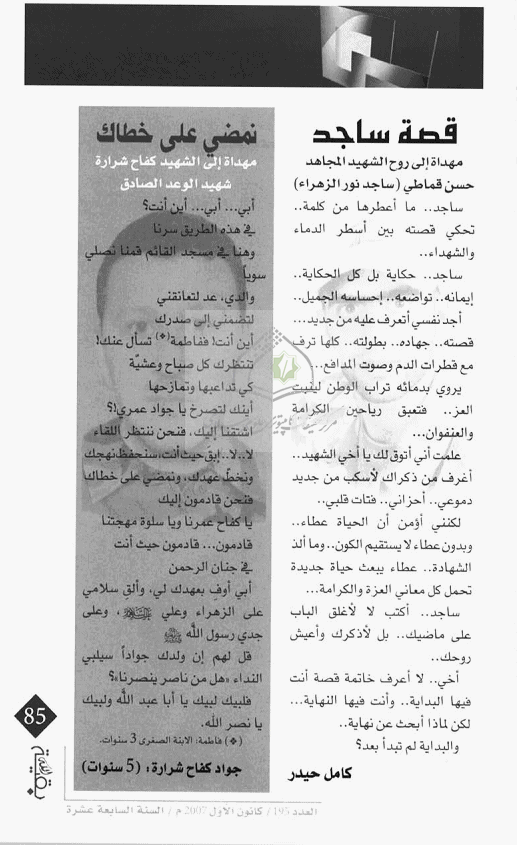 قصة ساجد
مهداة إلى روح الشهيد المجاهد
حسن قماطي (ساجد نور الزهراء)
ساجد.. ما أعطرها من كلمة..
تحكي قصته بين أسطر الدماء
والشهداء..
ساجد.. حكاية بل كل الحكاية..
إيمانه.. تواضعه.. إحساسه الجميل..
أجد نفسي أتعرف عليه من جديد...
قصته.. جهاده.. بطولته.. كلها ترف
مع قطرات الدم وصوت المدافع...
يروي بدمائه تراب الوطن لينبت
العز.. فتعبق رياحين الكرامة
والعنفوان...
علمت أني أتوق لك يا أخي الشهيد..
أغرف من ذكراك لأسكب من جديد
دموعي.. أحزاني.. فتات قلبي..
لكنني أؤمن أن الحياة عطاء..
وبدون عطاء لا يستقيم الكون.. وما ألذ
الشهادة.. عطاء يبعث حياة جديدة
تحمل كل معاني العزة والكرامة...
ساجد.. أكتب لا لأغلق الباب
على ماضيك.. بل لأذكرك وأعيش
روحك..
أخي.. لا أعرف خاتمة قصة أنت
فيها البداية.. وأنت فيها النهاية...
لكن لماذا أبحث عن نهاية..
والبداية لم تبدأ بعد؟
كامل حيدر
نمضي على خطاك
مهداة إلى الشهيد كفاح شرارة
شهيد الوعد الصادق
أبي... أبي... أين أنت؟
في هذه الطريق سرنا
وهنا في مسجد القائم قمنا نصلي
سوياً
والدي، عد لتعانقني
لتضمني إلى صدرك
أين أنت! ففاطمة(*) تسأل عنك!
تنتظرك كل صباح وعشيّة
كي تداعبها وتمازحها
أينك لتصرخ يا جواد عمري!؟
اشتقنا إليك، فنحن ننتظر اللقاء
لا.. لا.. إبق حيث أنت، سنحفظ نهجك
ونخطّ عهدك، ونمضي على خطاك
فنحن قادمون إليك
يا كفاح عمرنا ويا سلوة مهجتنا
قادمون... قادمون حيث أنت
في جنان الرحمن
أبي أوف بعهدك لي، وألقِ سلامي
على الزهراء وعلي ، وعلى
جدي رسول الله ﷺ
قل لهم إن ولدك جواداً سيلبي
النداء «هل من ناصر ينصرنا»؟
فلبيك لبيك يا أبا عبد الله ولبيك
يا نصر الله.
(*) فاطمة: الابنة الصغرى 3 سنوات.
جواد كفاح شرارة: (5 سنوات)
85
بقية الله
العدد 195/ كانون الأول 2007 م/ السنة السابعة عشرة